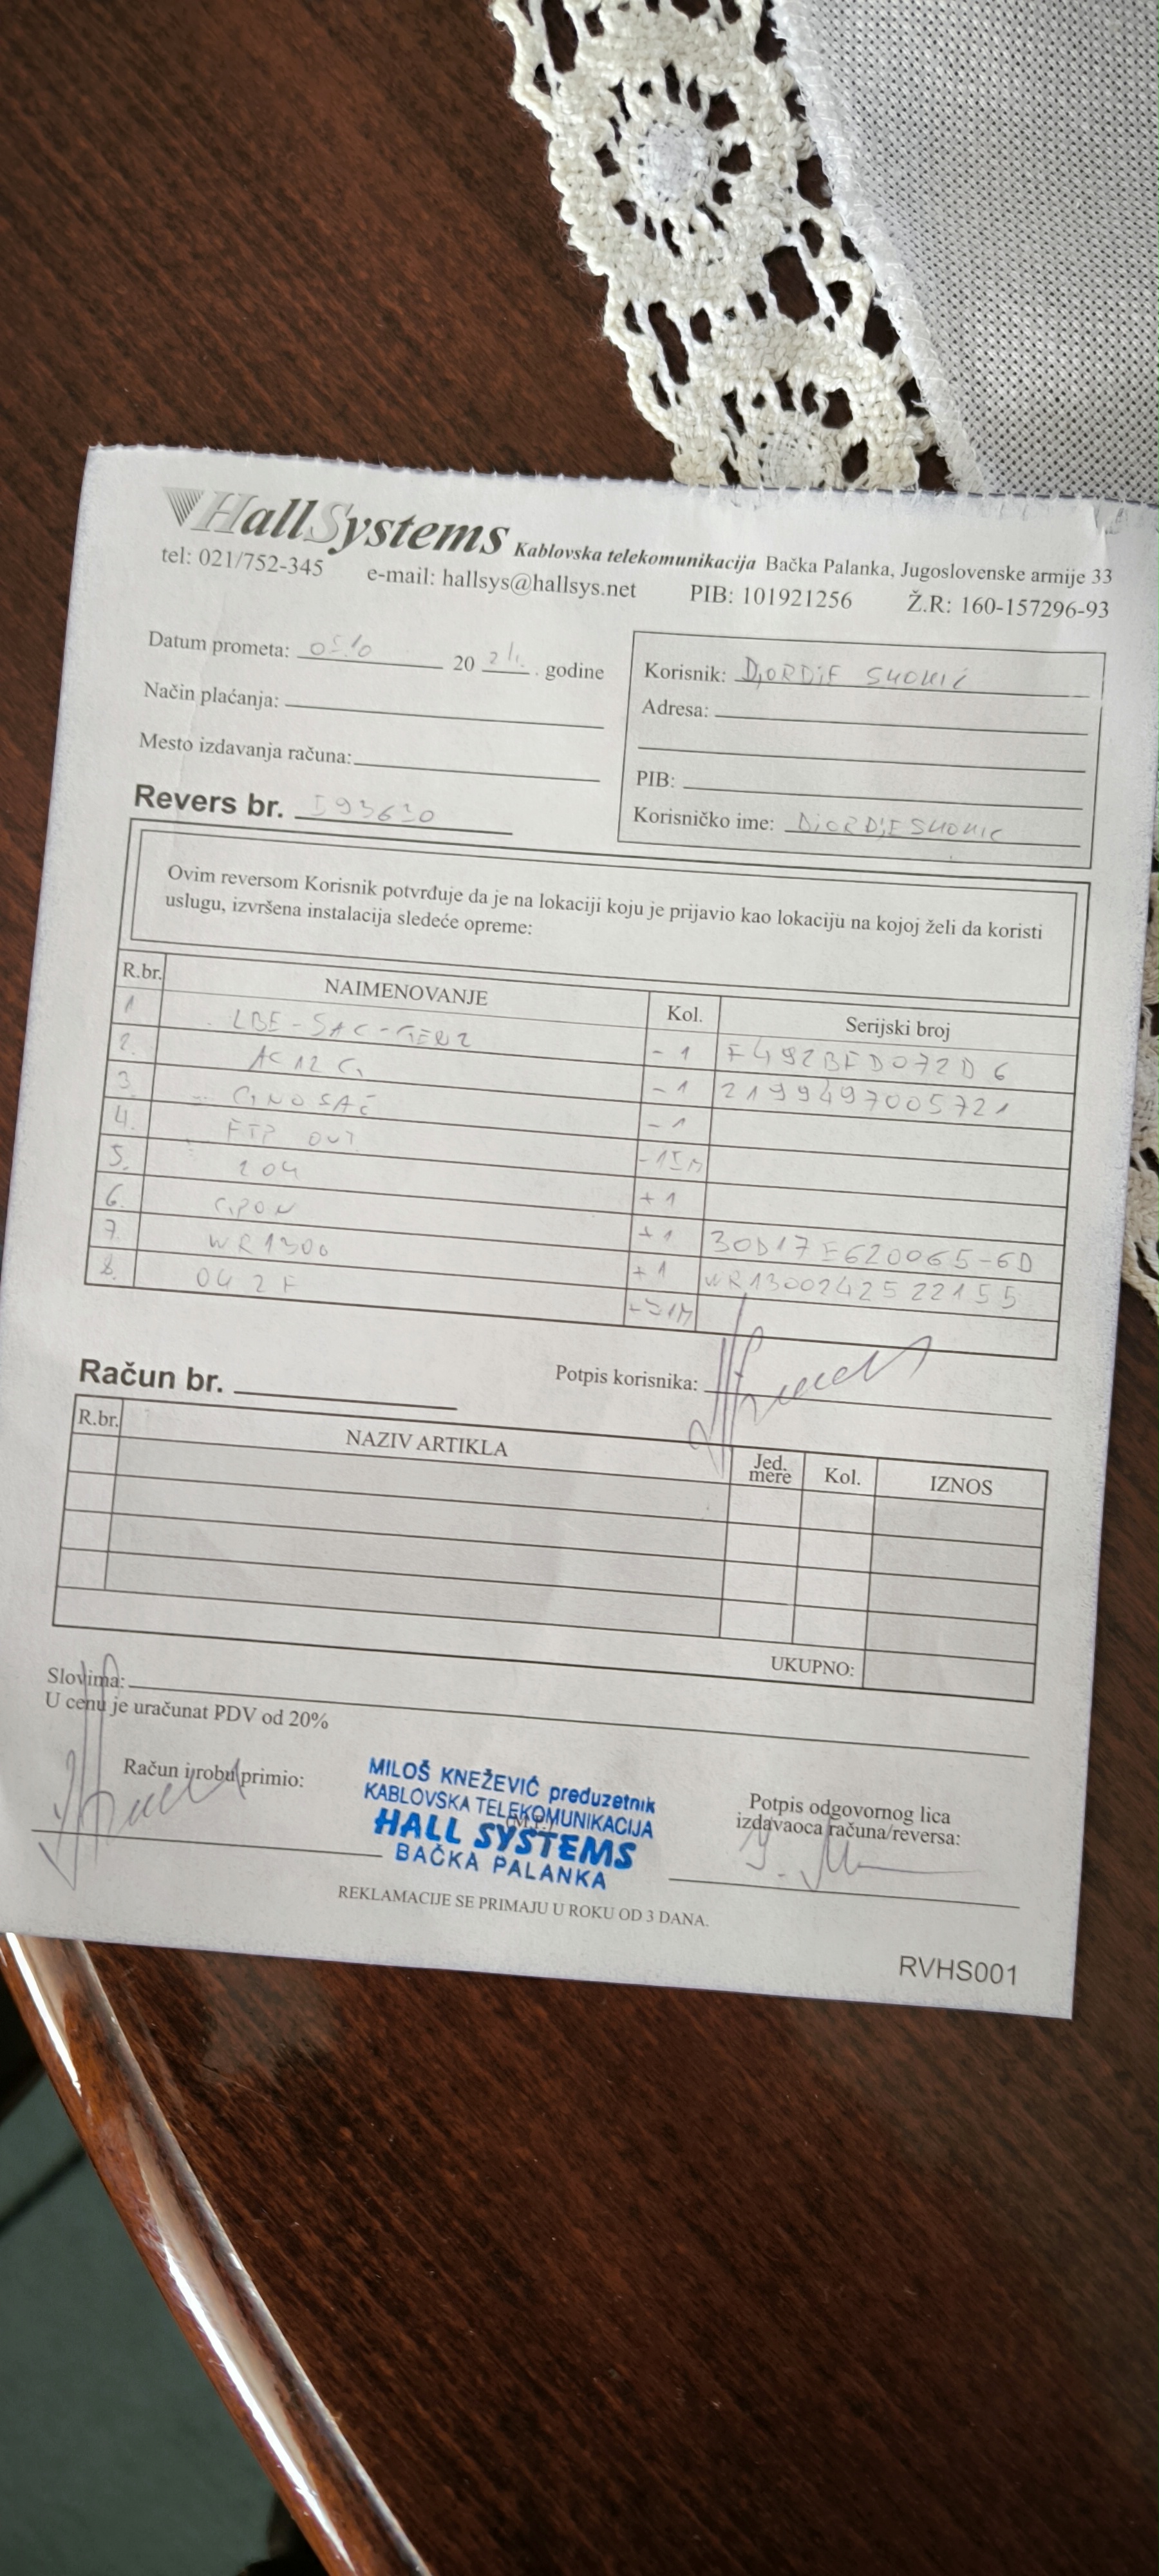 HallSystems Kablovska telekomunikacija Bačka Palanka, Jugoslovenske armije 33
tel: 021/752-345 e-mail: hallsys@hallsys.net PIB: 101921256 Ž.R: 160-157296-93
Datum prometa: 05.10 20 21. godine
Način plaćanja:
Mesto izdavanja računa:
Korisnik: DJORDJE
Adresa:
PIB:
Korisničko ime:
Revers br. 193630
Ovim reversom Korisnik potvrđuje da je na lokaciji koju je prijavio kao lokaciju na kojoj želi da koristi
uslugu, izvršena instalacija sledeće opreme:
R.br. NAIMENOVANJE Kol. Serijski broj
1 LBE-5AC-GEN2 -1 F492BFD072D6
2. AC12G -1 2199497005721
3. GNOSAČ -1
4. FTP OUT -15M
5. 204 +1
6. GPON +1 30D17E620065-6D
7. WR1300 +1 WR1300242522155
8. 042F
Potpis korisnika:
Račun br.
R.br. NAZIV ARTIKLA Jed. mere Kol. IZNOS
UKUPNO:
Slovima:
U cenu je uračunat PDV od 20%
Račun i robu primio:
MILOŠ KNEŽEVIĆ preduzetnik
KABLOVSKA TELEKOMUNIKACIJA
HALL SYSTEMS
BAČKA PALANKA
Potpis odgovornog lica
izdavaoca računa/reversa:
REKLAMACIJE SE PRIMAJU U ROKU OD 3 DANA.
RVHS001